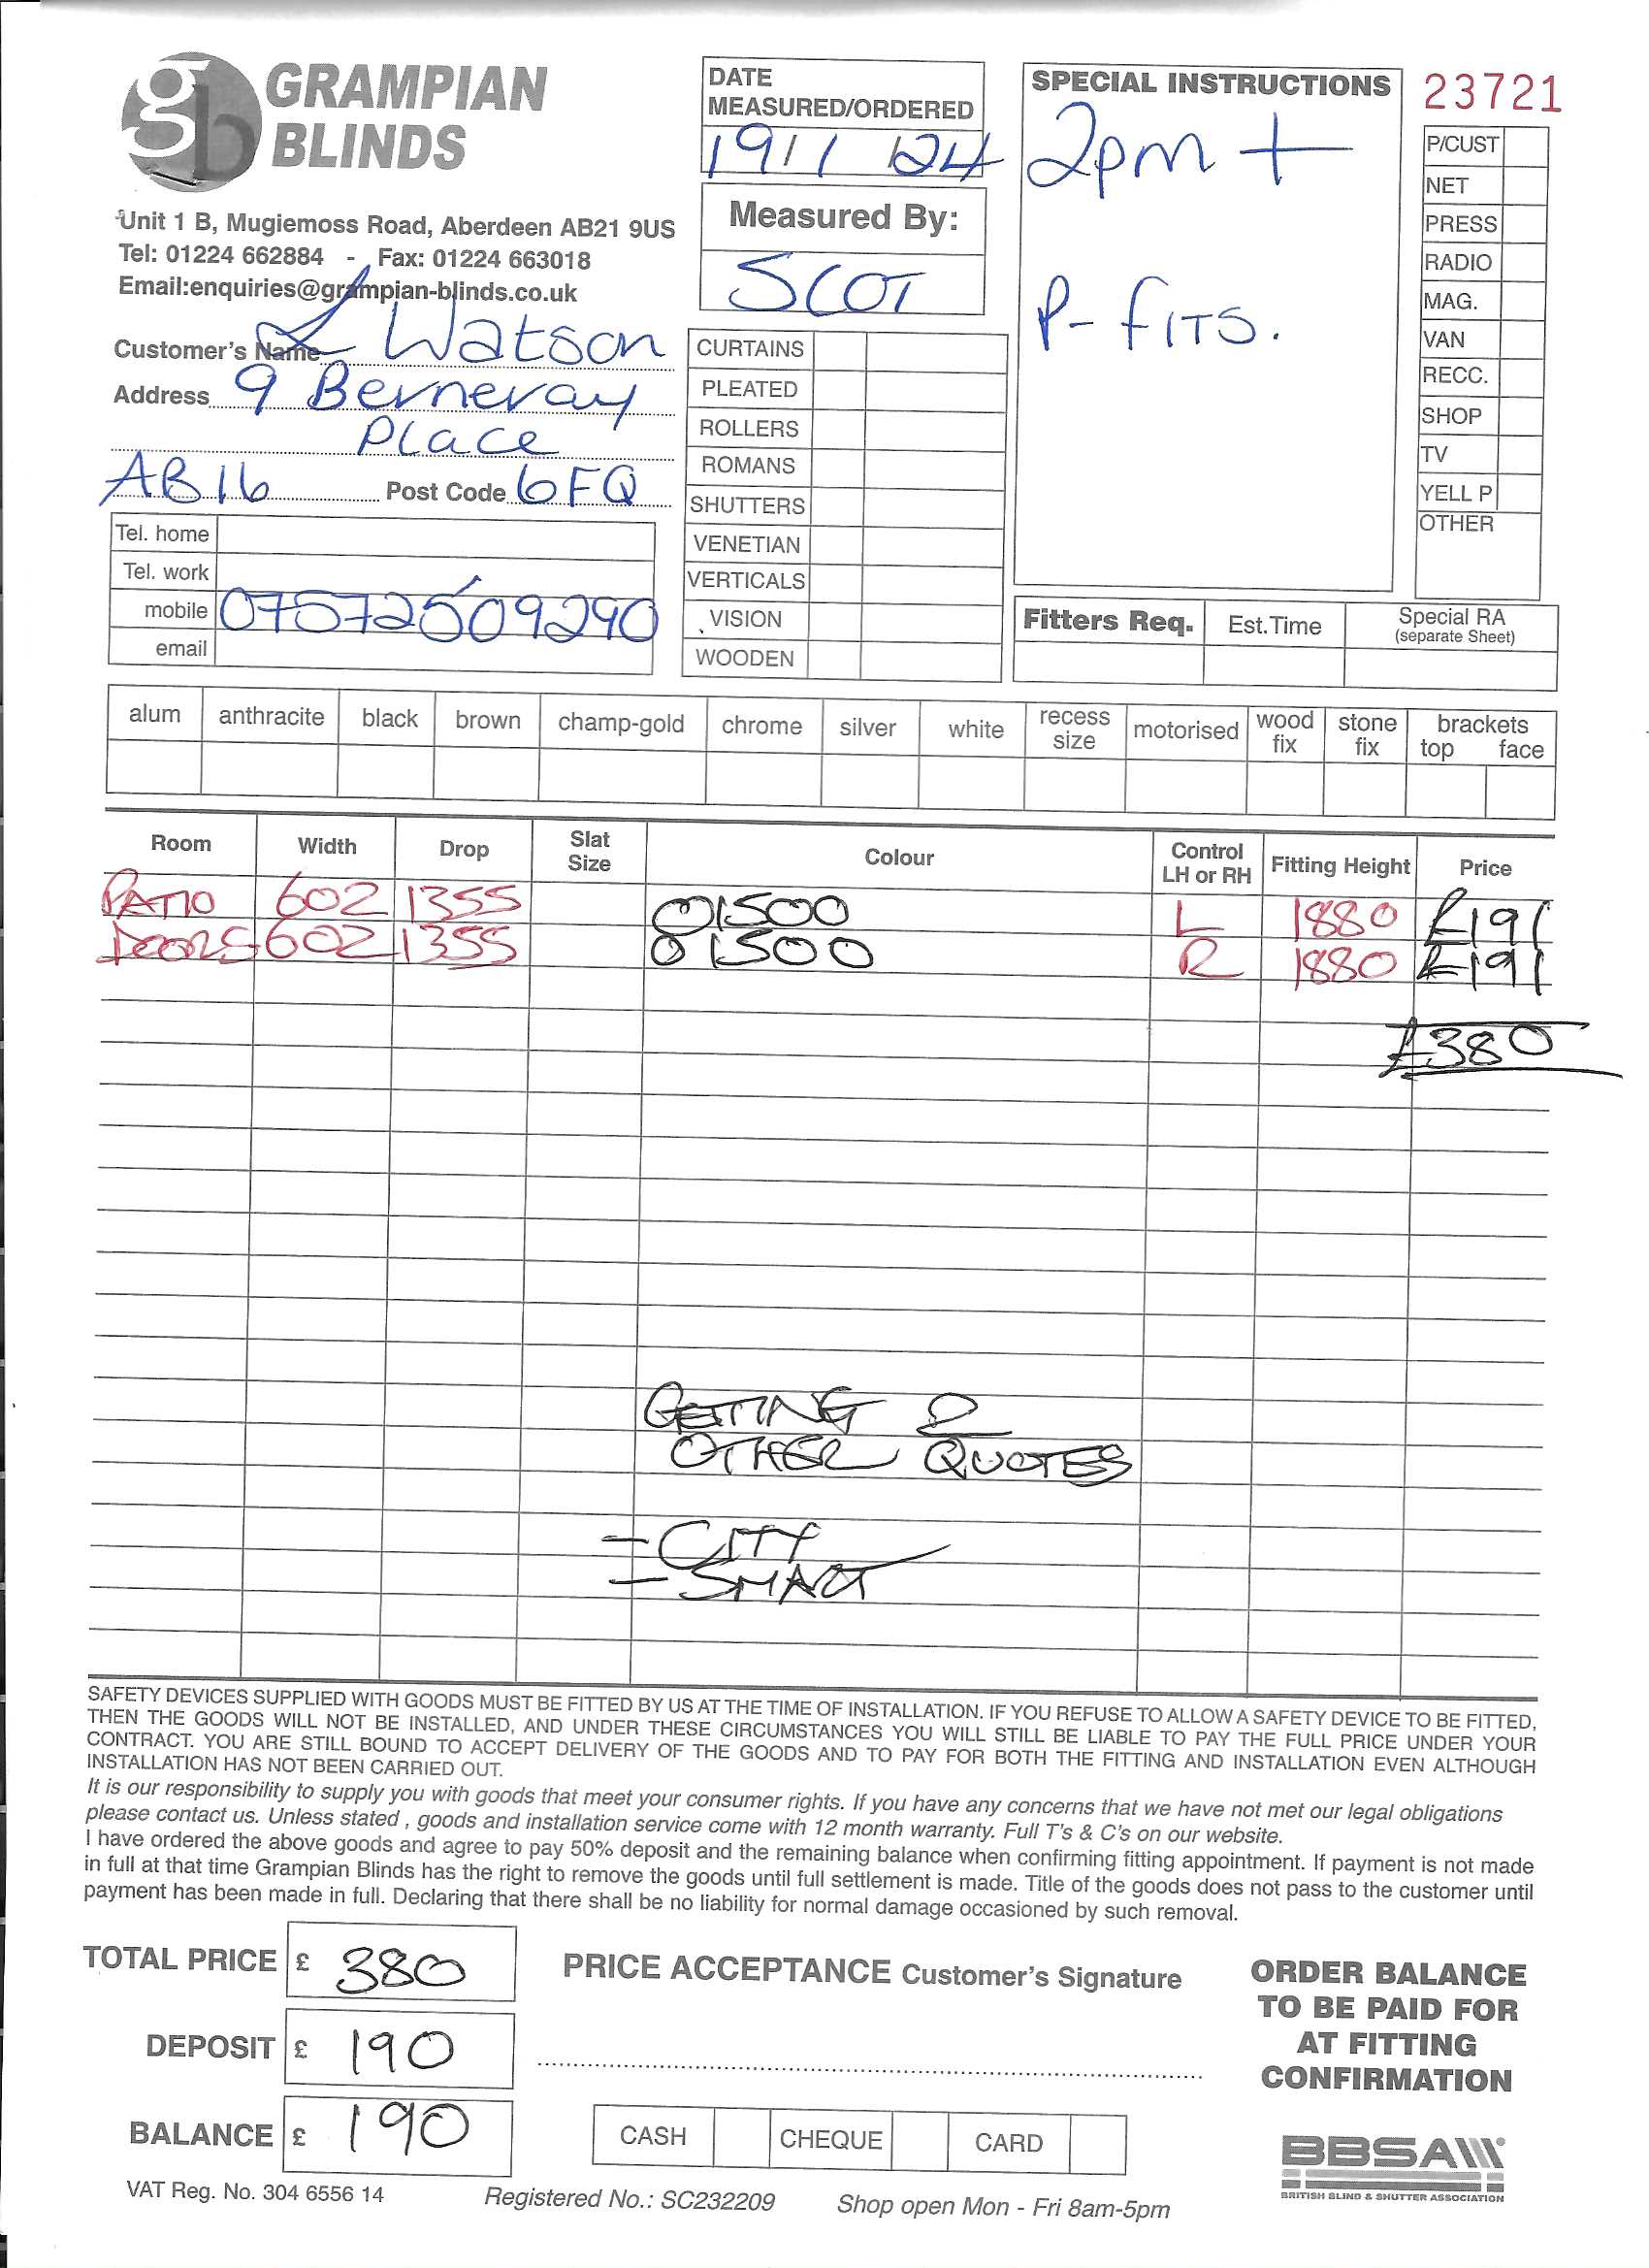 gb GRAMPIAN
BLINDS
Unit 1 B, Mugiemoss Road, Aberdeen AB21 9US
Tel: 01224 662884 - Fax: 01224 663018
Email:enquiries@grampian-blinds.co.uk
Customer's Name L Watson
Address 9 Berneray
Place
AB16 Post Code 6FQ
Tel. home
Tel. work
mobile 07572509290
email
DATE
MEASURED/ORDERED
19/1/24
Measured By:
SCOT
CURTAINS
PLEATED
ROLLERS
ROMANS
SHUTTERS
VENETIAN
VERTICALS
VISION
WOODEN
SPECIAL INSTRUCTIONS
2pm +
P- FITS.
23721
P/CUST
NET
PRESS
RADIO
MAG.
VAN
RECC.
SHOP
TV
YELL P
OTHER
Fitters Req. Est.Time Special RA
(separate Sheet)
alum anthracite black brown champ-gold chrome silver white recess size motorised wood fix stone fix brackets top face
Room Width Drop Slat Size Colour Control LH or RH Fitting Height Price
PATIO 602 1355 01500 L 1880 £191
DOORS 602 1355 01500 R 1880 £191
£380
GETTING 2
OTHER QUOTES
- CITY
- SMART
SAFETY DEVICES SUPPLIED WITH GOODS MUST BE FITTED BY US AT THE TIME OF INSTALLATION. IF YOU REFUSE TO ALLOW A SAFETY DEVICE TO BE FITTED,
THEN THE GOODS WILL NOT BE INSTALLED, AND UNDER THESE CIRCUMSTANCES YOU WILL STILL BE LIABLE TO PAY THE FULL PRICE UNDER YOUR
CONTRACT. YOU ARE STILL BOUND TO ACCEPT DELIVERY OF THE GOODS AND TO PAY FOR BOTH THE FITTING AND INSTALLATION EVEN ALTHOUGH
INSTALLATION HAS NOT BEEN CARRIED OUT.
It is our responsibility to supply you with goods that meet your consumer rights. If you have any concerns that we have not met our legal obligations
please contact us. Unless stated , goods and installation service come with 12 month warranty. Full T's & C's on our website.
I have ordered the above goods and agree to pay 50% deposit and the remaining balance when confirming fitting appointment. If payment is not made
in full at that time Grampian Blinds has the right to remove the goods until full settlement is made. Title of the goods does not pass to the customer until
payment has been made in full. Declaring that there shall be no liability for normal damage occasioned by such removal.
TOTAL PRICE £ 380
DEPOSIT £ 190
BALANCE £ 190
PRICE ACCEPTANCE Customer's Signature
CASH CHEQUE CARD
ORDER BALANCE
TO BE PAID FOR
AT FITTING
CONFIRMATION
BBSA
BRITISH BLIND & SHUTTER ASSOCIATION
VAT Reg. No. 304 6556 14 Registered No.: SC232209 Shop open Mon - Fri 8am-5pm